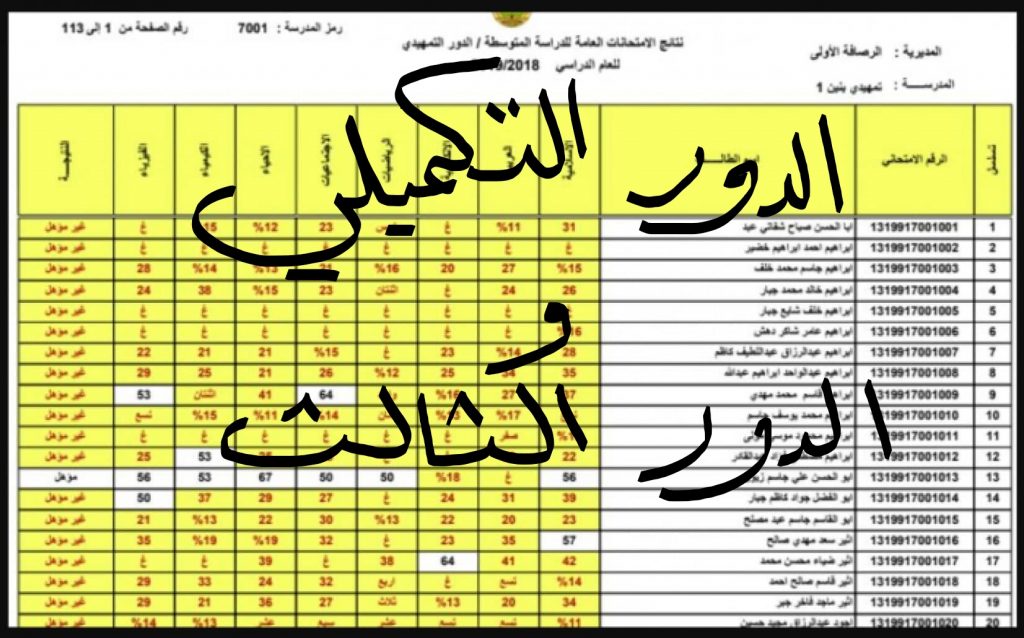 نتائج الامتحانات العامة للدراسة المتوسطة / الدور التمهيدي
للعام الدراسي 2019/2018
المديرية : الرصافة الأولى
المدرســـة : تمهيدي بنين 1
رمز المدرسة : 7001
رقم الصفحة من 1 إلى 113
الدور التكميلي
و
الدور الثالث
تسلسل الرقم الامتحاني الاسلامية الرياضيات الاجتماعيات الاحياء الكيمياء الفيزياء النتيجة
1 1319917001001 ابا الحسن صباح شفاتي عبد 31 %11 غ 23 %12 غ غير مؤهل
2 1319917001002 ابراهيم احمد ابراهيم خضير غ غ غ غ غ غ غ غ غير مؤهل
3 1319917001003 ابراهيم جاسم محمد خلف %15 27 20 %16 21 %13 %14 28 غير مؤهل
4 1319917001004 ابراهيم خالد محمد جبار 26 24 غ اثنتان 23 %15 38 24 غير مؤهل
5 1319917001005 ابراهيم خلف شايع جبار غ غ غ غ غ غ غ غير مؤهل
6 1319917001006 ابراهيم عامر شاكر دهش %16 غ غ غ غ غ غ غير مؤهل
7 1319917001007 ابراهيم عبدالرزاق عبداللطيف كاظم 28 %14 23 غ %15 21 21 22 غير مؤهل
8 1319917001008 ابراهيم عبدالواحد ابراهيم عبدالله 35 34 25 %12 26 21 25 29 غير مؤهل
9 1319917001009 ابراهيم قاسم محمد مهدي 37 27 %16 64 41 اثنتان 53 غير مؤهل
10 1319917001010 ابراهيم محمد يوسف جاسم %17 %13 %14 %11 %15 تسع غير مؤهل
11 1319917001011 ابراهيم صفر غ غ غ غ غ غ غير مؤهل
12 1319917001012 ابراهيم 22 53 25 غير مؤهل
13 1319917001013 ابو الحسن علي جاسم 56 غ %18 50 50 67 53 56 مؤهل
14 1319917001014 ابو الفضل جواد كاظم جبار 39 31 24 غ 27 29 37 50 غير مؤهل
15 1319917001015 ابو القاسم جاسم عبد مصلح 23 20 22 %13 30 22 %13 21 غير مؤهل
16 1319917001016 اثير سعد مهدي صالح 57 35 23 غ 32 %19 %19 35 غير مؤهل
17 1319917001017 اثير ضياء محسن محمد 42 41 64 38 غ 39 غ غ غير مؤهل
18 1319917001018 اثير قاسم صالح احمد %14 تسع غ اربع 32 24 33 29 غير مؤهل
19 1319917001019 اثير ماجد فاخر جبر 34 20 %13 ثلاث 27 36 21 29 غير مؤهل
20 1319917001020 اجود عبدالرزاق مجيد حسين %11 تسع تسع عشر سبع عشر %13 %14 غير مؤهل